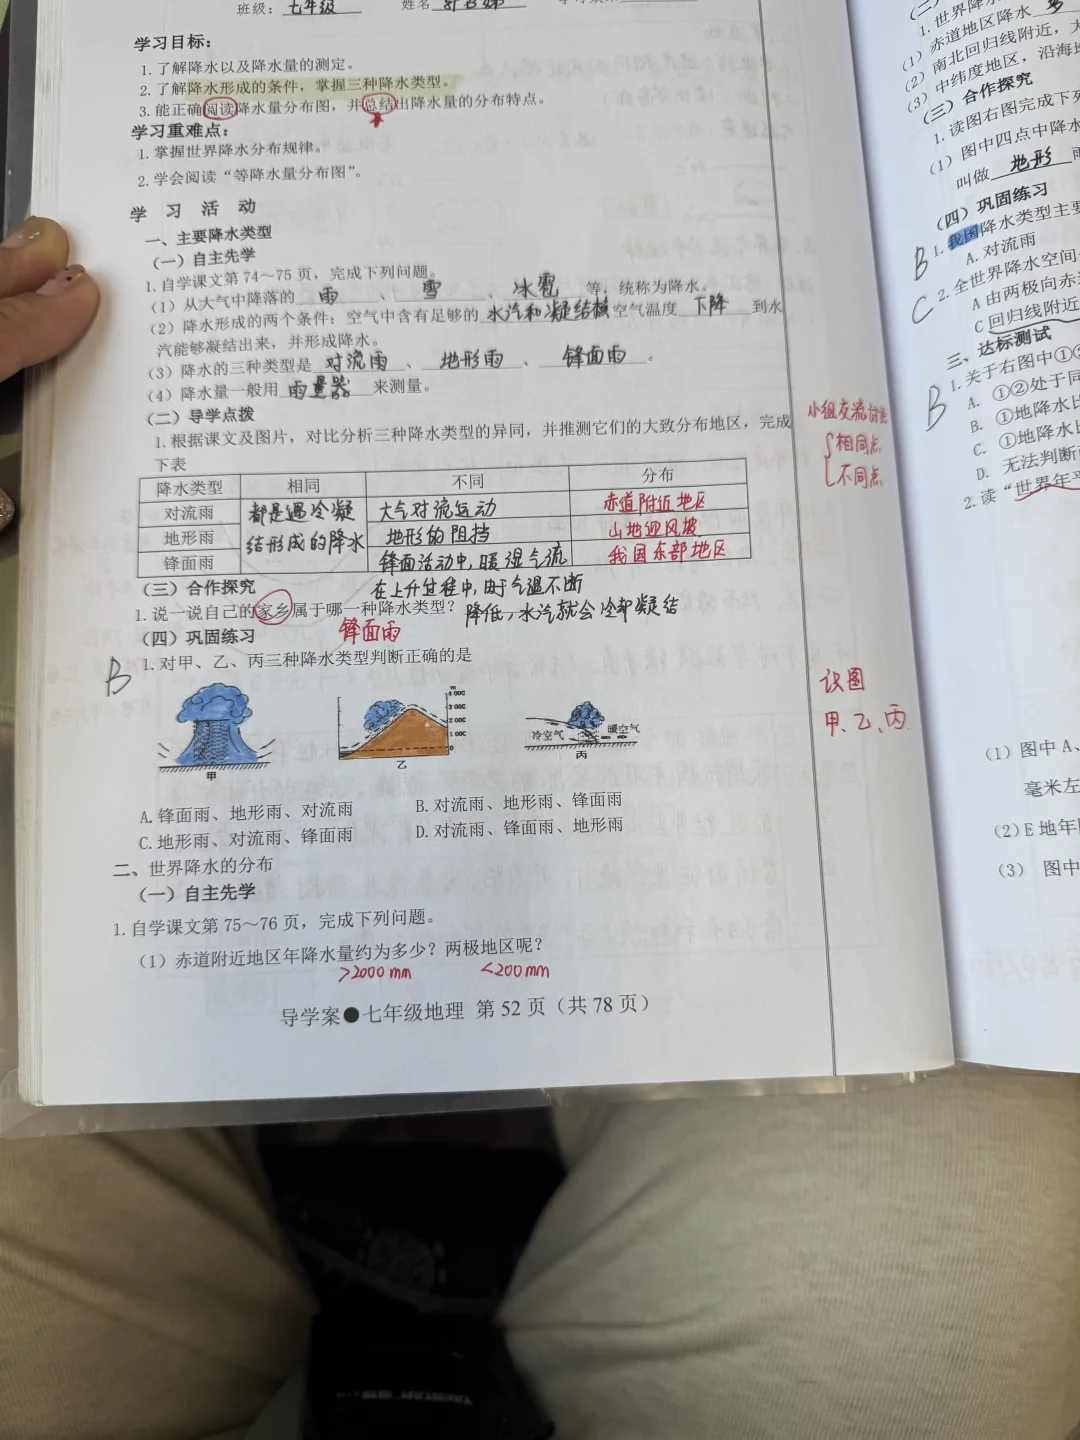 班级：七年级 姓名
学习目标：
1.了解降水以及降水量的测定。
2.了解降水形成的条件，掌握三种降水类型。
3.能正确阅读降水量分布图，并总结出降水量的分布特点。
学习重难点：
1.掌握世界降水分布规律。
2.学会阅读“等降水量分布图”。
学 习 活 动
一、主要降水类型
（一）自主先学
1.自学课文第74～75页，完成下列问题。
（1）从大气中降落的 雨 、 雪 、 冰雹 等，统称为降水。
（2）降水形成的两个条件：空气中含有足够的水汽和凝结核空气温度 下降 到水
汽能够凝结出来，并形成降水。
（3）降水的三种类型是 对流雨 、 地形雨 、 锋面雨 。
（4）降水量一般用 雨量器 来测量。
（二）导学点拨
1.根据课文及图片，对比分析三种降水类型的异同，并推测它们的大致分布地区，完成
下表
小组交流讨论
相同点
不同点
降水类型 相同 不同 分布
对流雨 都是遇冷凝 大气对流运动 赤道附近地区
地形雨 结形成的降水 地形的阻挡 山地迎风坡
锋面雨 锋面活动中，暖湿气流 我国东部地区
在上升过程中，由于气温不断
降低，水汽就会冷却凝结
（三）合作探究
1.说一说自己的家乡属于哪一种降水类型？
锋面雨
（四）巩固练习
B 1.对甲、乙、丙三种降水类型判断正确的是
识图
甲、乙、丙
m
4 000
3 000
2 000
1 000
0
冷空气 暖空气
甲 乙 丙
A.锋面雨、地形雨、对流雨 B.对流雨、地形雨、锋面雨
C.地形雨、对流雨、锋面雨 D.对流雨、锋面雨、地形雨
二、世界降水的分布
（一）自主先学
1.自学课文第75～76页，完成下列问题。
（1）赤道附近地区年降水量约为多少？两极地区呢？
>2000mm <200mm
导学案●七年级地理 第52页（共78页）
1.世界降水
（1）赤道地区降水 多
（2）南北回归线附近，大
（3）中纬度地区，沿海地
（三）合作探究
1.读图右图完成下列
（1）图中四点中降水
叫做 地形 雨
（四）巩固练习
B 1.我国降水类型主要
A.对流雨
C 2.全世界降水空间
A由两极向赤道
C回归线附近
三、达标测试
B 1.关于右图中①②
A. ①②处于同
B. ①地降水比
C. ①地降水比
D. 无法判断
2.读“世界年平
（1）图中A、
毫米左
（2）E地年
（3） 图中